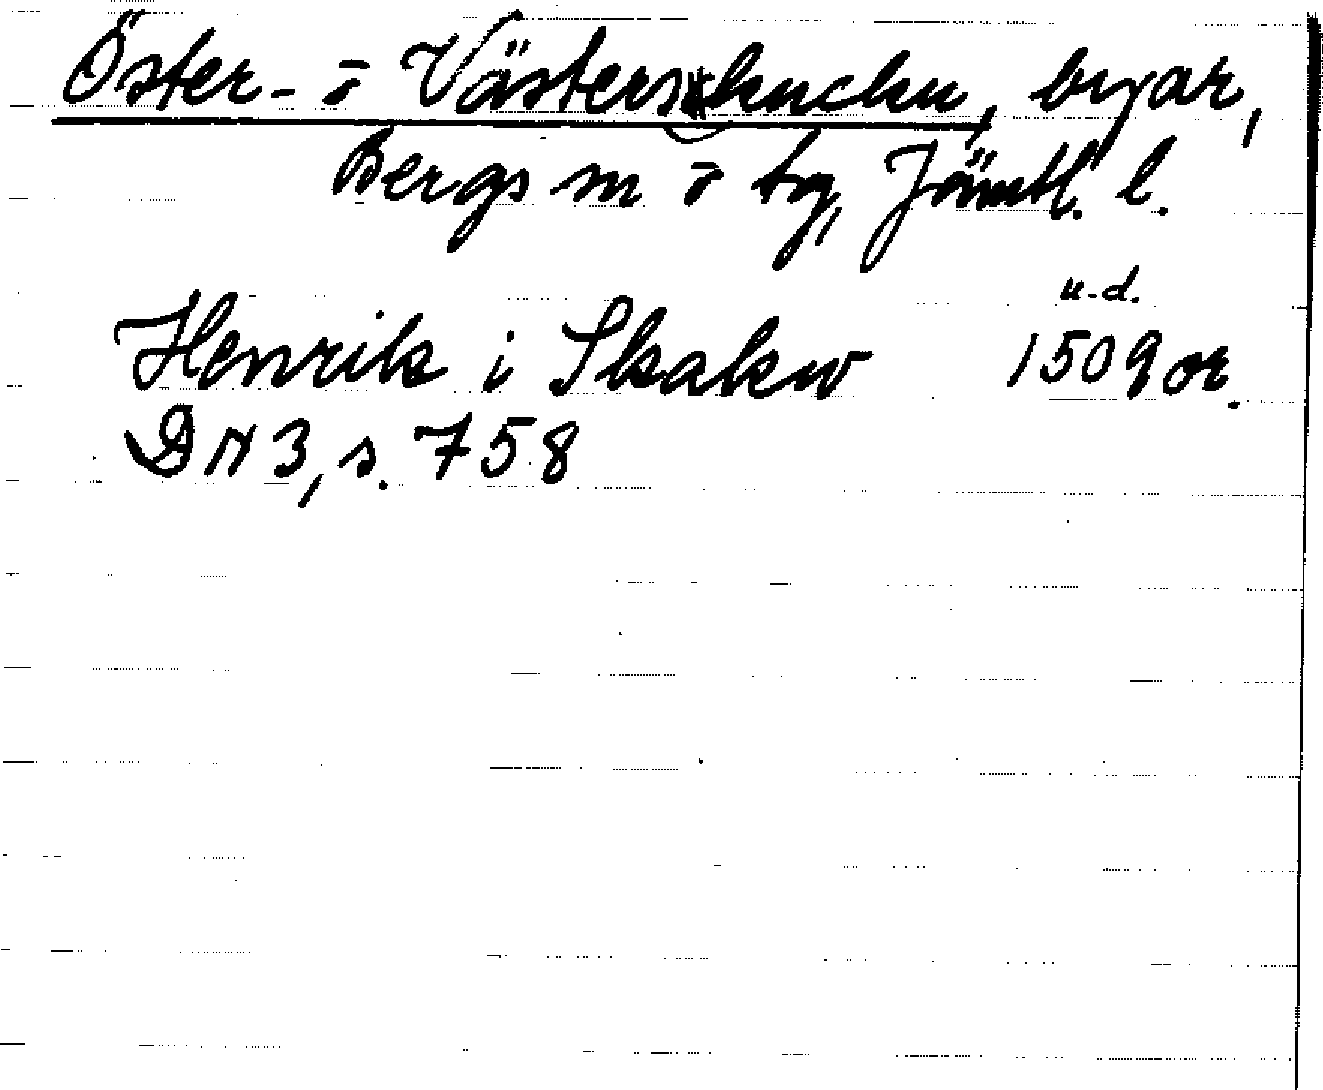 Öster- o Västerskucku, byar,
Bergs sn o tg, Jämtl. l.
u.d.
Henrik i Skakw 1509 or.
DN 3, s. 758